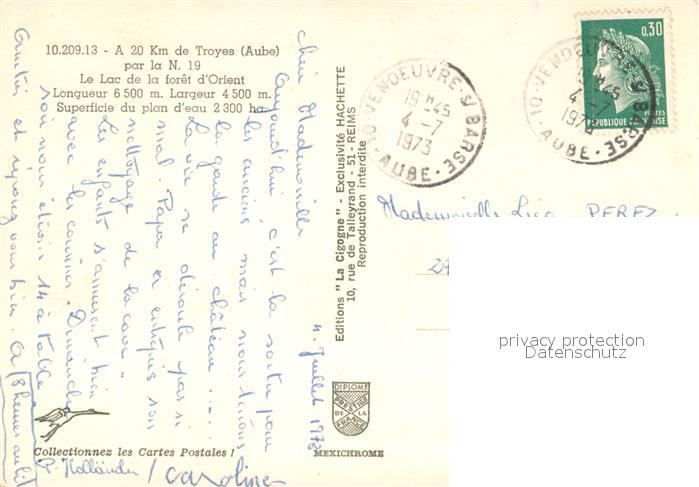 10.209.13 - A 20 Km de Troyes (Aube)
par la N. 19
Le Lac de la forêt d'Orient
Longueur 6 500 m. Largeur 4 500 m.
Superficie du plan d'eau 2 300 ha
4. Juillet 1973
Chère Mademoiselle
Aujourd'hui c'est la sortie pour
les anciens mais nous tenons
la garde au château ....
La vie se déroule pas si
mal. Papa a entrepris son
nettoyage de la cave.
Les enfants s'amusent bien
avec les cousines. Dimanche
soir nous étions 14 à table
Amitiés et reposez vous bien. A
P. Hollander / Caroline
Collectionnez les Cartes Postales !
Editions "La Cigogne" - Exclusivité HACHETTE
10, rue de Talleyrand - 51 - REIMS
Reproduction interdite
DIPLOME
PRESTIGE
DE LA
FRANCE
MEXICHROME
10-VENDEUVRE-S/BARSE
19 H45
4 -7
1973
-AUBE-
10-VENDEUVRE-S/BARSE
19 H45
4 -7
1973
-AUBE-
0,30
POSTES
REPUBLIQUE FRANÇAISE
Mademoiselle PEREZ
privacy protection
Datenschutz